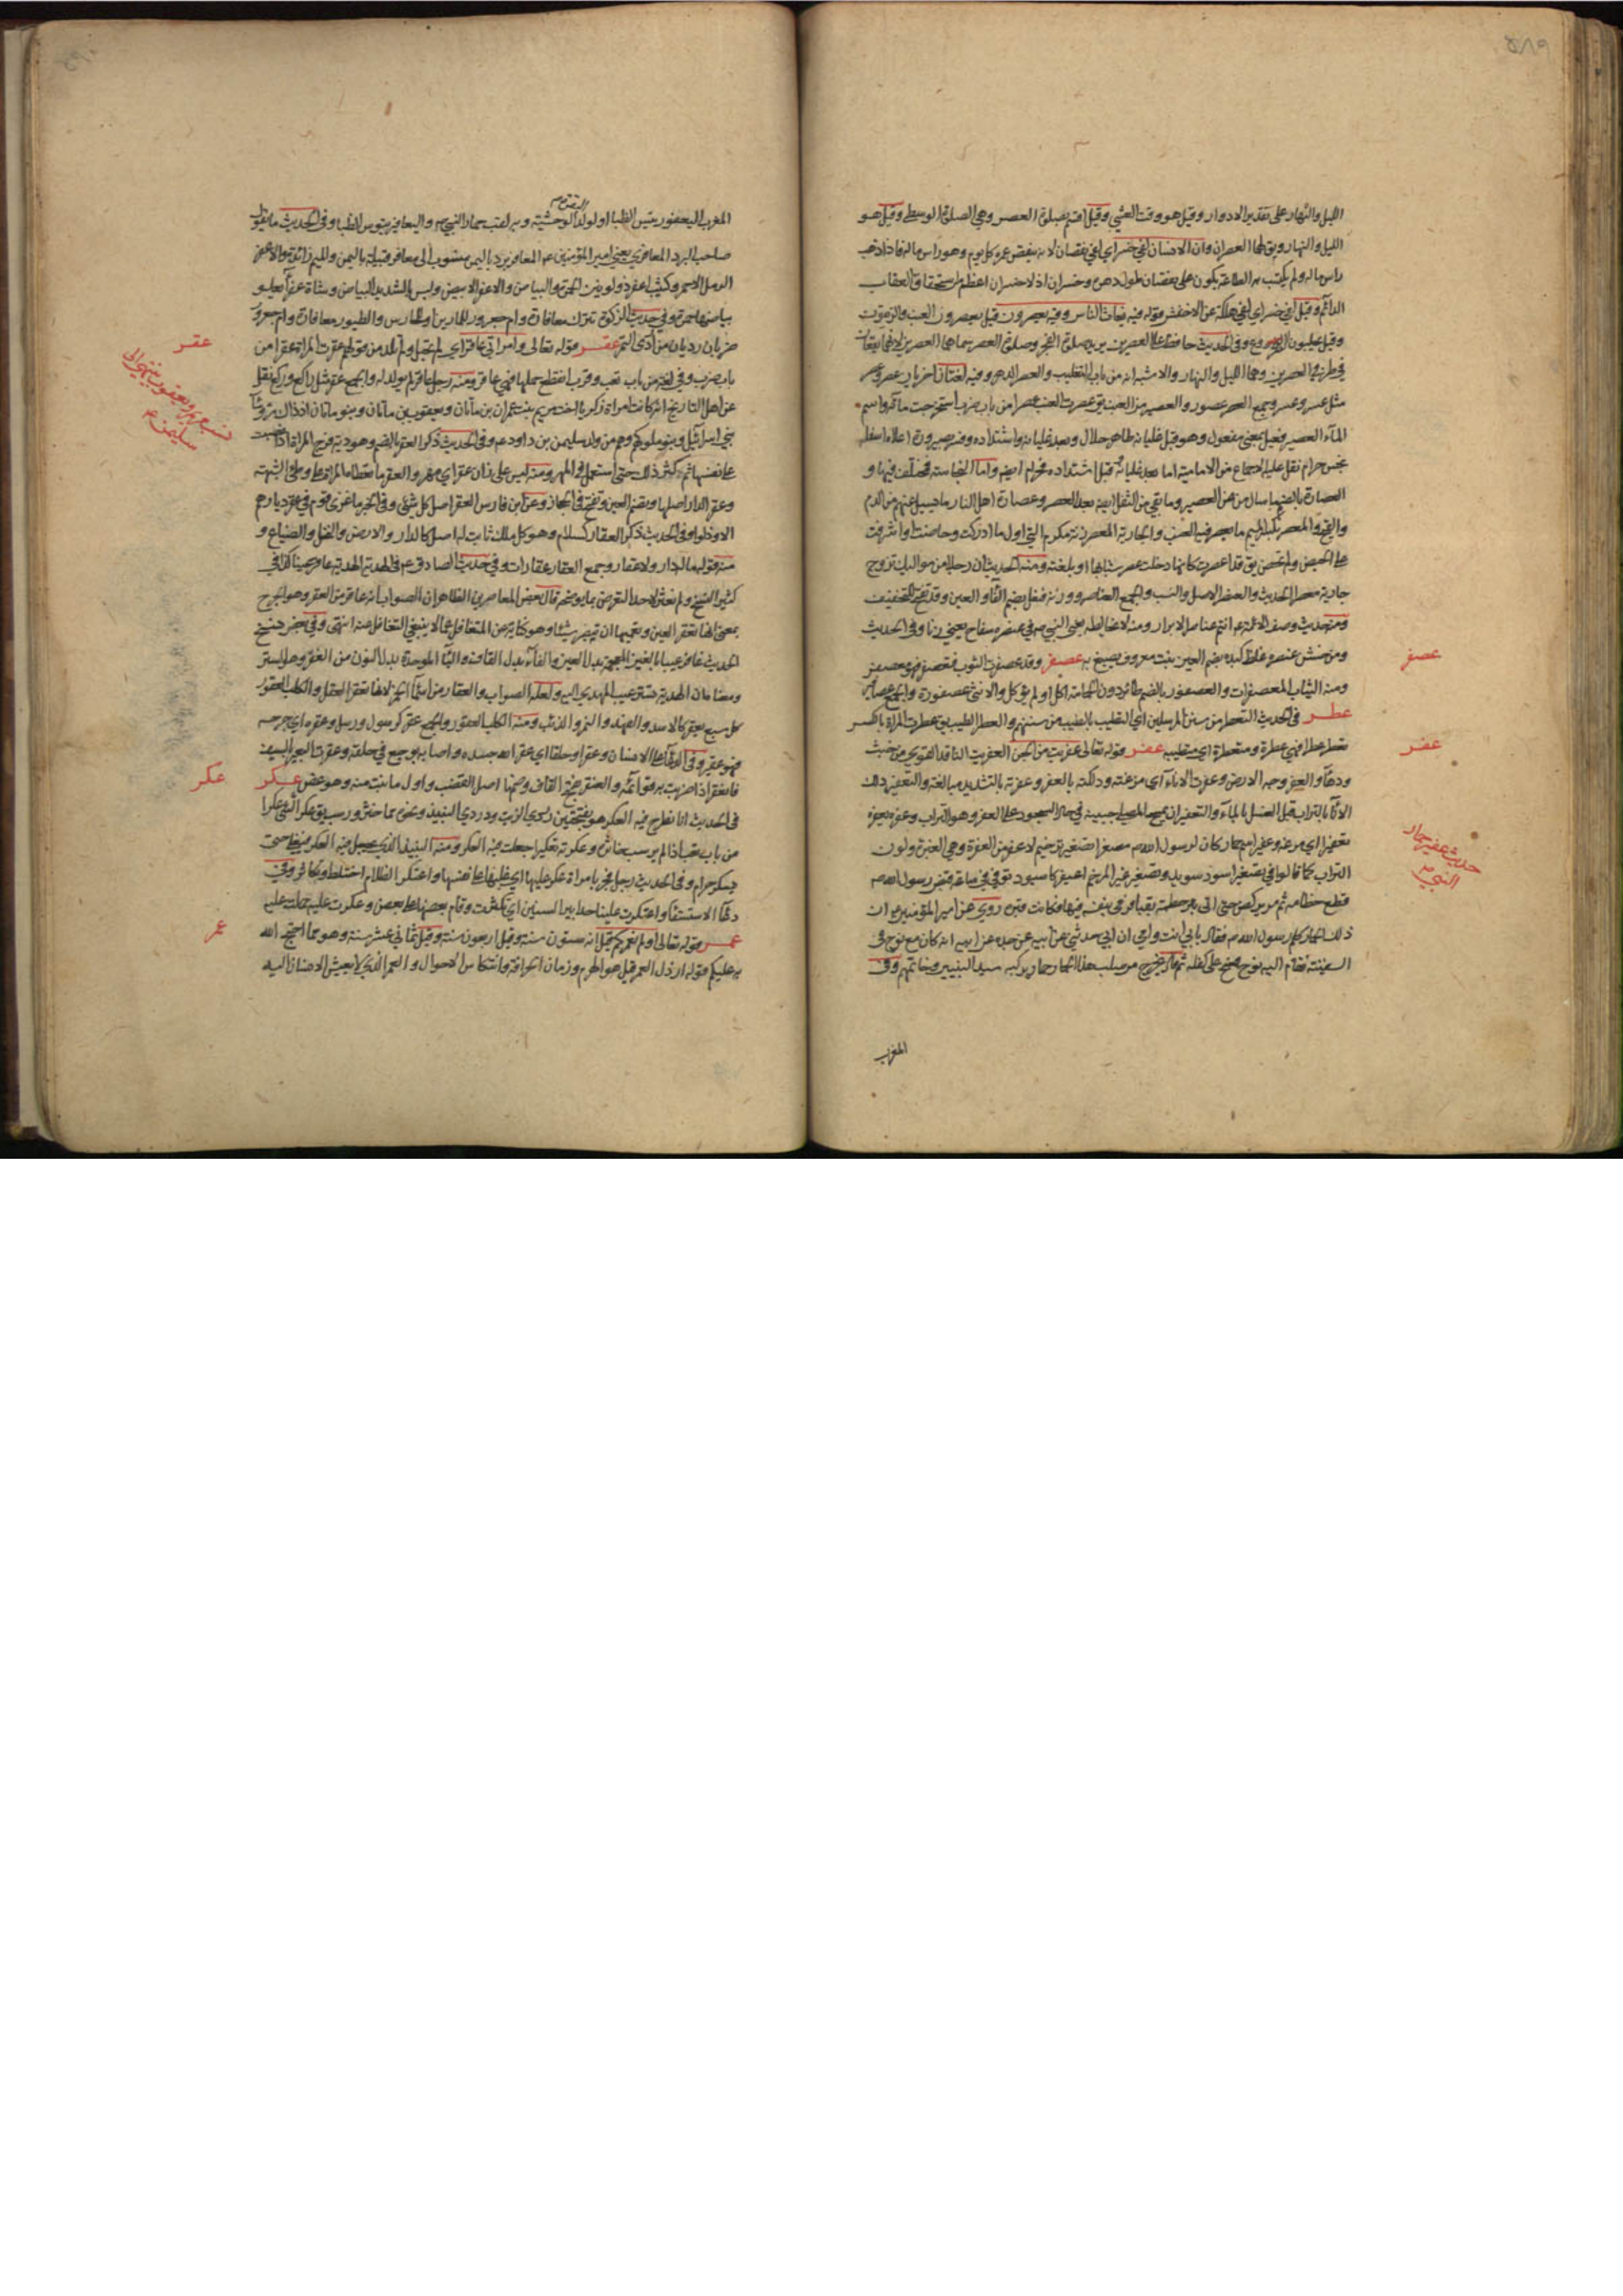 الليل والنهار على تقدير الادوار وقيل هو وقت العشي وقيل اقسم بصلوة العصر وهي الصلوة الوسطى وقيل هو
الليل والنهار ويق لهما العصران وان الانسان لفي خسر اي لفي نقصان لانه ينقص عمره كل يوم وهو راس ماله فاذا ذهب
راس ماله ولم يكتسب به الطاعة يكون على نقصان طول دهره وخسران اذ لا خسران اعظم من استحقاق العقاب
الدائم وقيل لفي خسر اي لفي هلكة عن الاخفش وقوله فيه يغاث الناس وفيه يعصرون قيل يعصرون العنب والزيتون
وقيل يحلبون الضروع وفي الحديث حافظ على العصرين يريد صلوة الفجر وصلوة العصر سماهما العصرين لانهما يقعان
في طرفي العصرين وهما الليل والنهار والاشبه انه من باب التغليب والعصر الدهر وفيه لغتان اخريان عصر وعصر
مثل عسر وعسر وجمع العصر عصور والعصير من العنب يق عصرت العنب عصرا من باب ضرب استخرجت ماءه واسم
الماء العصير فعيل بمعنى مفعول وهو قبل غليانه طاهر حلال وبعد غليانه واشتداده وفسر بصيرورة اعلاه اسفله
نجس حرام نقل عليه الاجماع من الامامية اما بعد غليانه وقبل اشتداده فحرام ايضا واما النجاسة فمختلف فيها و
العصارة بالضم ما سال من العصير وما بقي من الثفل ايضا بعد العصر وعصارة اهل النار ما يسيل عنهم من الدم
والقيح والمعصر بكسر الميم ما يعصر فيه العنب والجارية المعصر زنة مكرم التي اول ما ادركت وحاضت او اشرفت
على الحيض ولم تحض يق قد اعصرت كانها دخلت عصر شبابها او بلغته ومنه الحديث ان رجلا من مواليك تزوج
جارية معصرا الحديث والعنصر الاصل والنسب والجمع العناصر ووزنه فنعل بضم الفاء والعين وقد تفتح للتخفيف
ومنه حديث وصف الائمة ع انتم عناصر الابرار ومنه لا يخالطه يعني النبي ص في عنصره سفاح يعني زنا وفي الحديث
ومن خبث عنصره غلظ كبده بضم العين نبت معروف يصبغ به عصفر وقد عصفرت الثوب فتعصفر فهو معصفر
ومنه الثياب المعصفرات والعصفور بالضم طائر دون الحمامة اكل او لم يؤكل والانثى عصفورة والجمع عصافير
عطر في الحديث التعطر من سنن المرسلين اي التطيب بالطيب من سننهم والعطر الطيب يق عطرت المراة بالكسر
تعطر عطرا فهي عطرة ومتعطرة اي متطيبة عفر قوله تعالى عفريت من الجن العفريت النافذ القوي مع خبث
ودهاء والعفر وجه الارض وعفرت الاناء اي مرغته ودلكته بالعفر وعفرته بالتشديد مبالغة والتعفير دلك
الاناء بالتراب قبل الغسل بالماء والتعفير ان يمسح المصلي جبينه في حال السجود على العفر وهو التراب وعفره يعفره
تعفيرا اي مرغه وعفير اسم حمار كان لرسول الله ص مصغرا تصغير ترخيم لاعفر من العفرة وهي الغبرة ولون
التراب كما قالوا في تصغير اسود سويد وتصغير غير المرخم اعيفر كاسيود توفي في ساعة قبض رسول الله ص
قطع خطامه ثم مر يركض حتى اتى بئر خطمة بقبا فرمى بنفسه فيها فكانت قبره روي عن امير المؤمنين ع ان
ذلك الحمار كلم رسول الله ص فقال بابي انت وامي ان ابي حدثني عن ابيه عن جده عن ابيه انه كان مع نوح في
السفينة فقام اليه نوح فمسح على كفله ثم قال يخرج من صلب هذا الحمار حمار يركبه سيد النبيين وخاتمهم وفي
المغرب
عصفر
عفر
حديث عفير حمار
النبي ص
المغرب اليعفور تيس الظبا او لولد البقرة الوحشية وبه لقب حمار النبي ص واليعافير تيوس الظبا وفي الحديث ما يقول
صاحب البرد المعافري يعني امير المؤمنين ع المعافر برد باليمن منسوب الى معافر قبيلة باليمن والميم زائدة والاعفر
الرمل الاحمر وكثيب اعفر ذو لونين الحمرة والبياض والاعفر الابيض وليس بالشديد البياض وشاة عفراء يعلو
بياضها حمرة وفي حديث الزكوة تترك معافارة وام جعرور للمارين او للحارس والطيور معافارة وام جعرور
ضربان رديان من اردى التمر عقر قوله تعالى وامراتي عاقر اي لم تحبل ولم تلد من قولهم عقرت المراة عقرا من
باب ضرب وفي لغة من باب تعب وقرب انقطع حملها فهي عاقر ومنه رجل عاقر لم يولد له والجمع عقر مثل راكع وركع نقل
عن اهل التاريخ انه كانت امراة زكريا اخت مريم بنت عمران بن ماثان ويعقوب بن ماثان وبنو ماثان اذ ذاك رؤساء
بني اسرائيل وبنو ملوكهم وهم من ولد سليمن بن داود ع وفي الحديث ذكر العقر بالضم وهو دية فرج المراة اذا غصبت
على نفسها ثم كثر ذلك حتى استعمل في المهر ومنه ليس على زان عقر اي مهر والعقر ما تعطاه المراة على وطي الشبهة
وعقر الدار اصلها وبضم العين وتفتح في الحجاز وعن ابن فارس العقر اصل كل شئ وفي الخبر ما غزي قوم في عقر ديارهم
الا وذلوا وفي الحديث ذكر العقار كسلام وهو كل ملك ثابت له اصل كالدار والارض والنخل والضياع و
منه قولهم ما له دار ولا عقار وجمع العقار عقارات وفي حديث الصادق ع في الهدية الهدية عاقر عينا كذا في
كثير النسخ ولم نعثر لاحد التعرض ما يوضحه قال بعض المعاصرين الظاهر ان الصواب انه عاقر من العقر وهو الجرح
بمعنى انها تعقر العين وتعميها ان تبصر شيئا وهو كناية عن التغافل عما لا ينبغي التغافل عنه انتهى وفي بعض نسخ
الحديث غافر عيبا بالغين المعجمة بدل العين والفاء بدل القاف والباء الموحدة بدل النون من الغفر وهو الستر
ومعناه ان الهدية تستر عيب المهدي اليه ولعله الصواب والعقار من اسماء الخمر لانها تعقر العقل والكلب العقور
كل سبع يعقر كالاسد والفهد والنمر والذئب ومنه الكلب العقور والجمع عقر كرسول ورسل وعقره اي جرحه
فهو عقير وفي الدعاء على الانسان وعقرا وحلقا اي عقر الله جسده واصابه بوجع في حلقه وعقرت البعير بالسيف
فانعقر اذا ضربت به قوائمه والعنقر بفتح القاف وضمها اصل القضب واول ما ينبت منه وهو غض عكر
في الحديث انا نطرح فيه العكر هو بفتحتين دردي الزيت ودردي النبيذ ونحوه مما خثر ورسب يق عكر الشئ عكرا
من باب تعب اذا لم يرسب خاثره وعكرته تعكيرا جعلت فيه العكر ومنه النبيذ الذي يجعل فيه العكر فيغلي حتى
يسكر حرام وفي الحديث رجل فجر بامراة عكر عليها اي غلبها على نفسها واعتكر الظلام اختلط وتكاثر وفي
دعاء الاستسقاء واعتكرت علينا حدابير السنين اي تكثرت وقام بعضها على بعض وعكرت عليه حملت عليه
عمر قوله تعالى اولم نعمركم قيل انه ستون سنة وقيل اربعون سنة وقيل ثماني عشر سنة وهو مما احتج الله
به عليكم قوله ارذل العمر قيل هو الهرم وزمان الخرافة وانتكاس الاحوال والعمر الذي لا يعيش الانسان اليه
عقر
نسب مريم ويعقوب ينتهي الى
سليمن ع
عكر
عمر